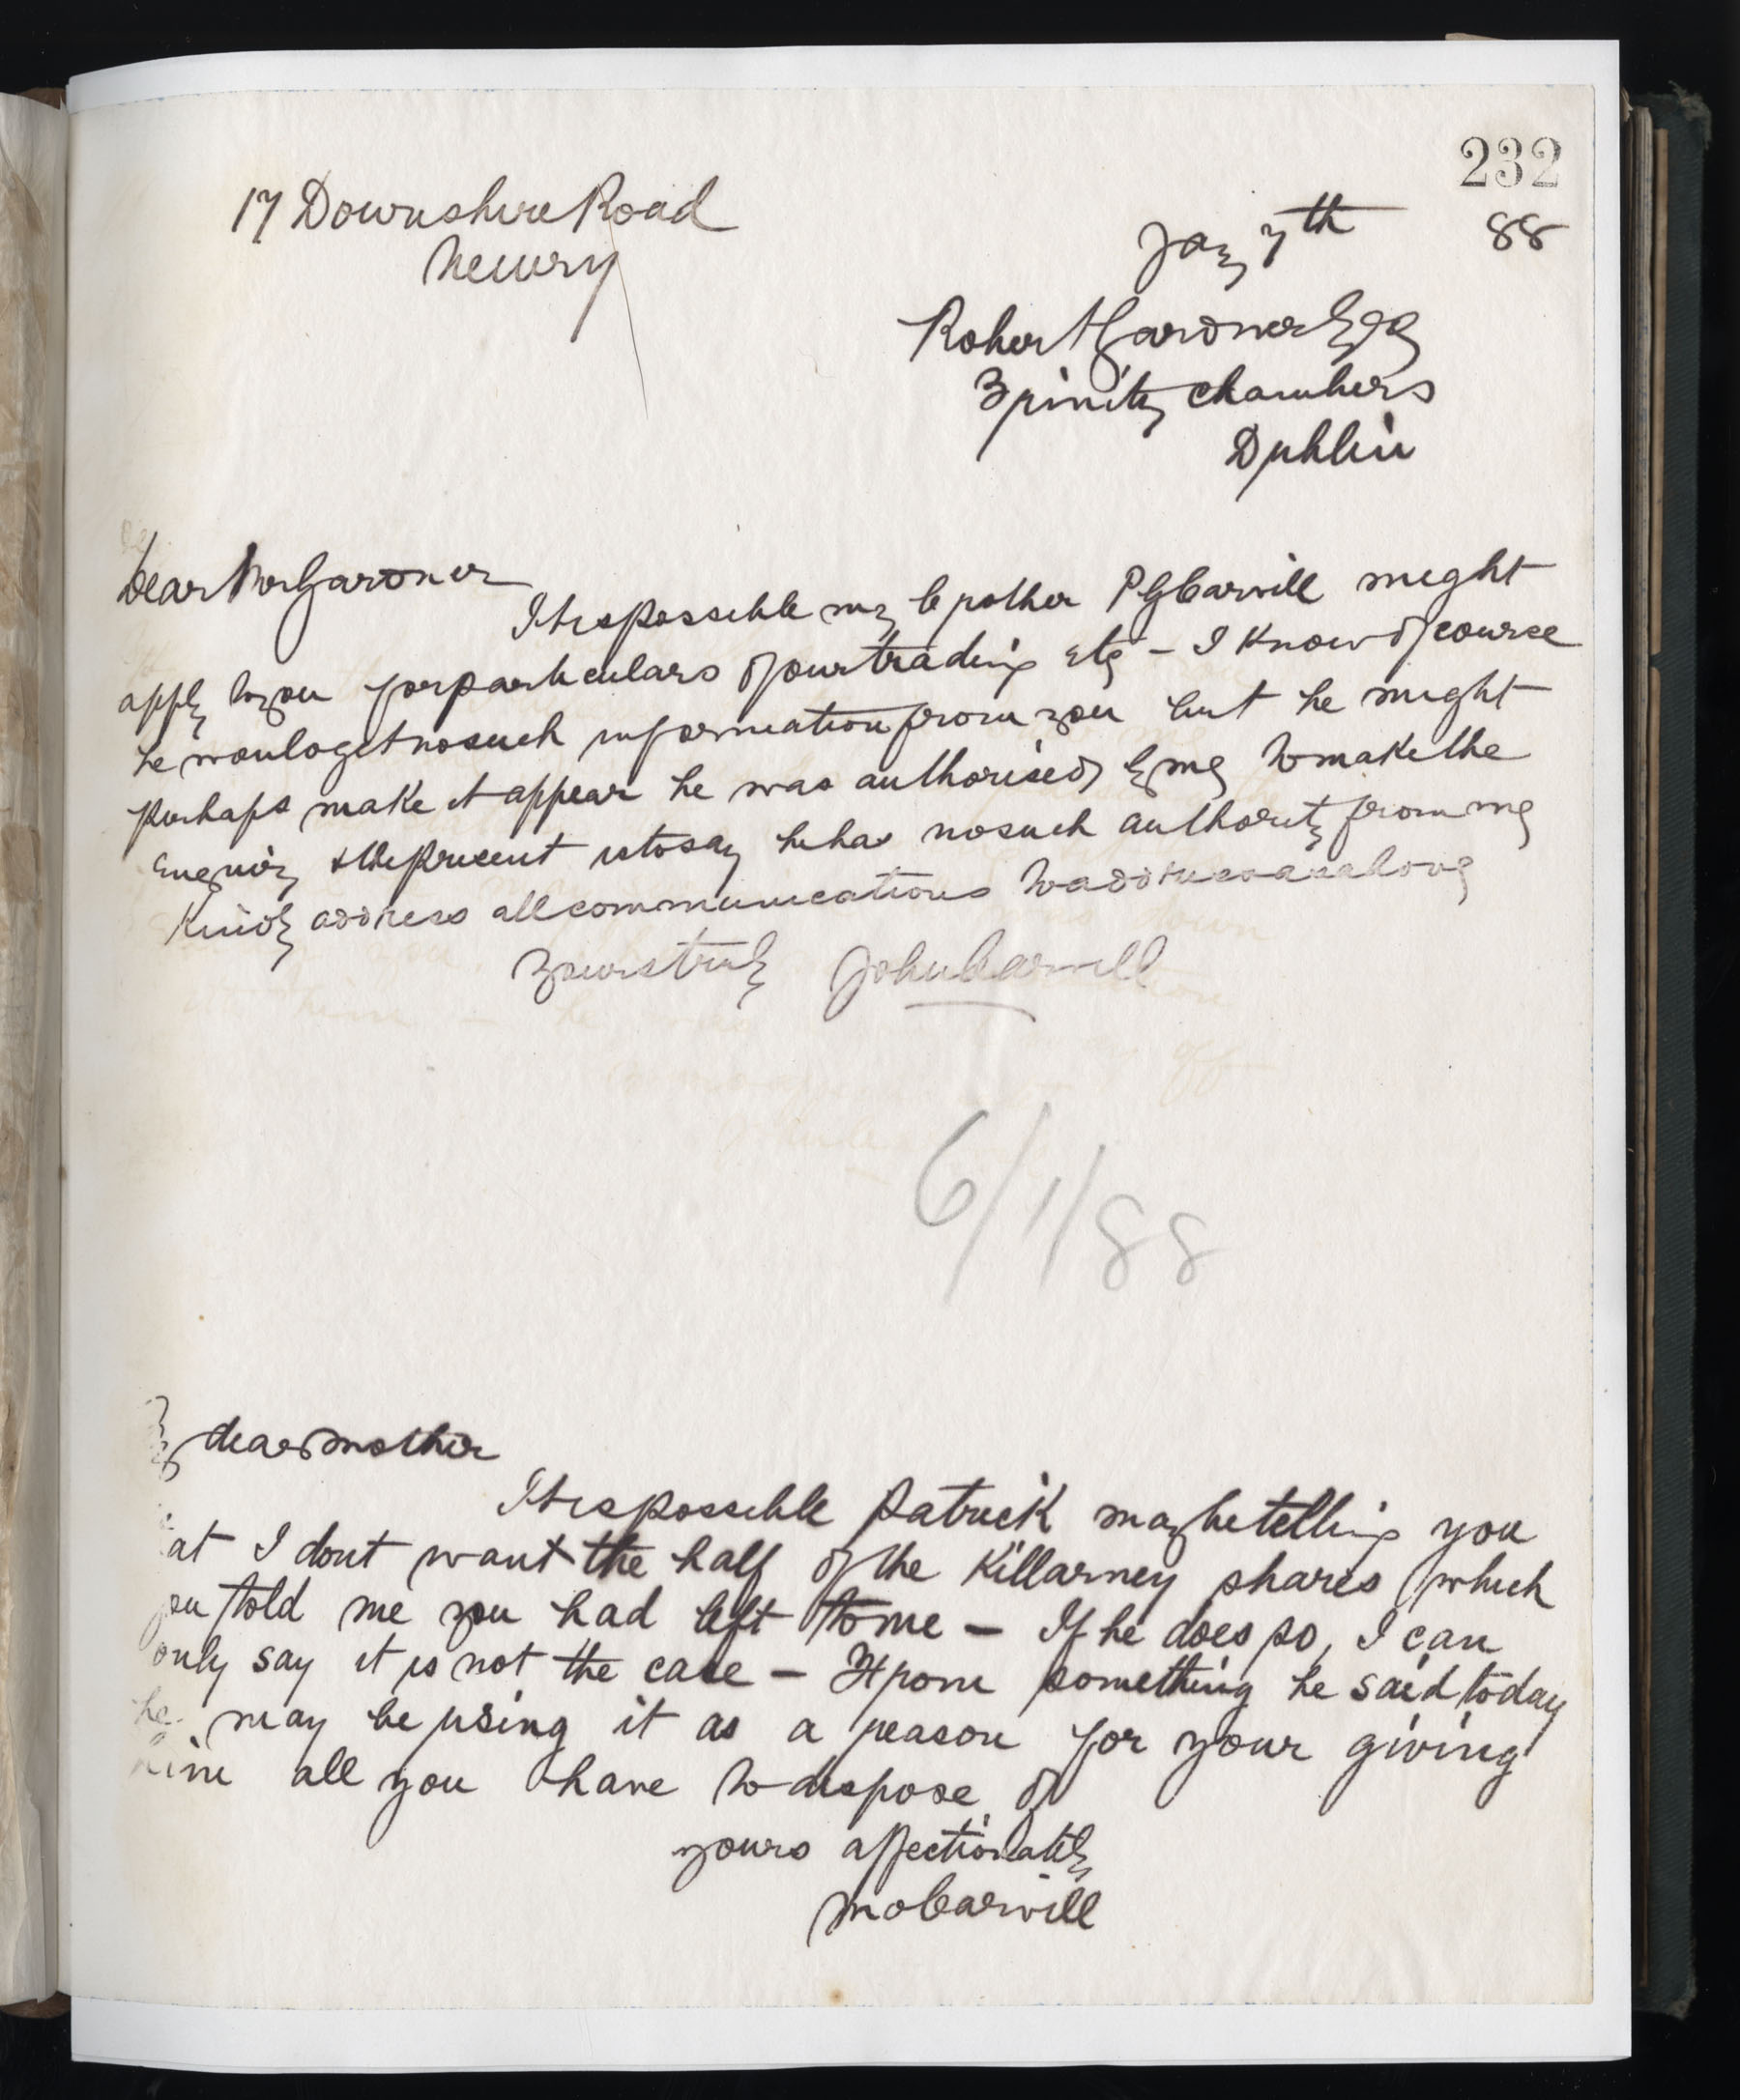 232
17 Downshire Road
Newry
Jay 7th 88
Robert Gardner Esq
Trinity Chambers
Dublin
Dear Mr Gardner
It is possible my brother P G Carvill might
apply to you for particulars of our trading etc - I know of course
he would get no such information from you but he might
perhaps make it appear he was authorised by me to make the
enquiry & the present is to say he has no such authority from me
Kindly address all communications to address as above
Yours truly John Carvill
6/1/88
My dear Mother
It is possible Patrick may be telling you
at I dont want the half of the Killarney shares which
you told me you had left to me - If he does so, I can
only say it is not the case - From something he said today
he may be using it as a reason for your giving
him all you have to dispose of
yours affectionately
Carvill